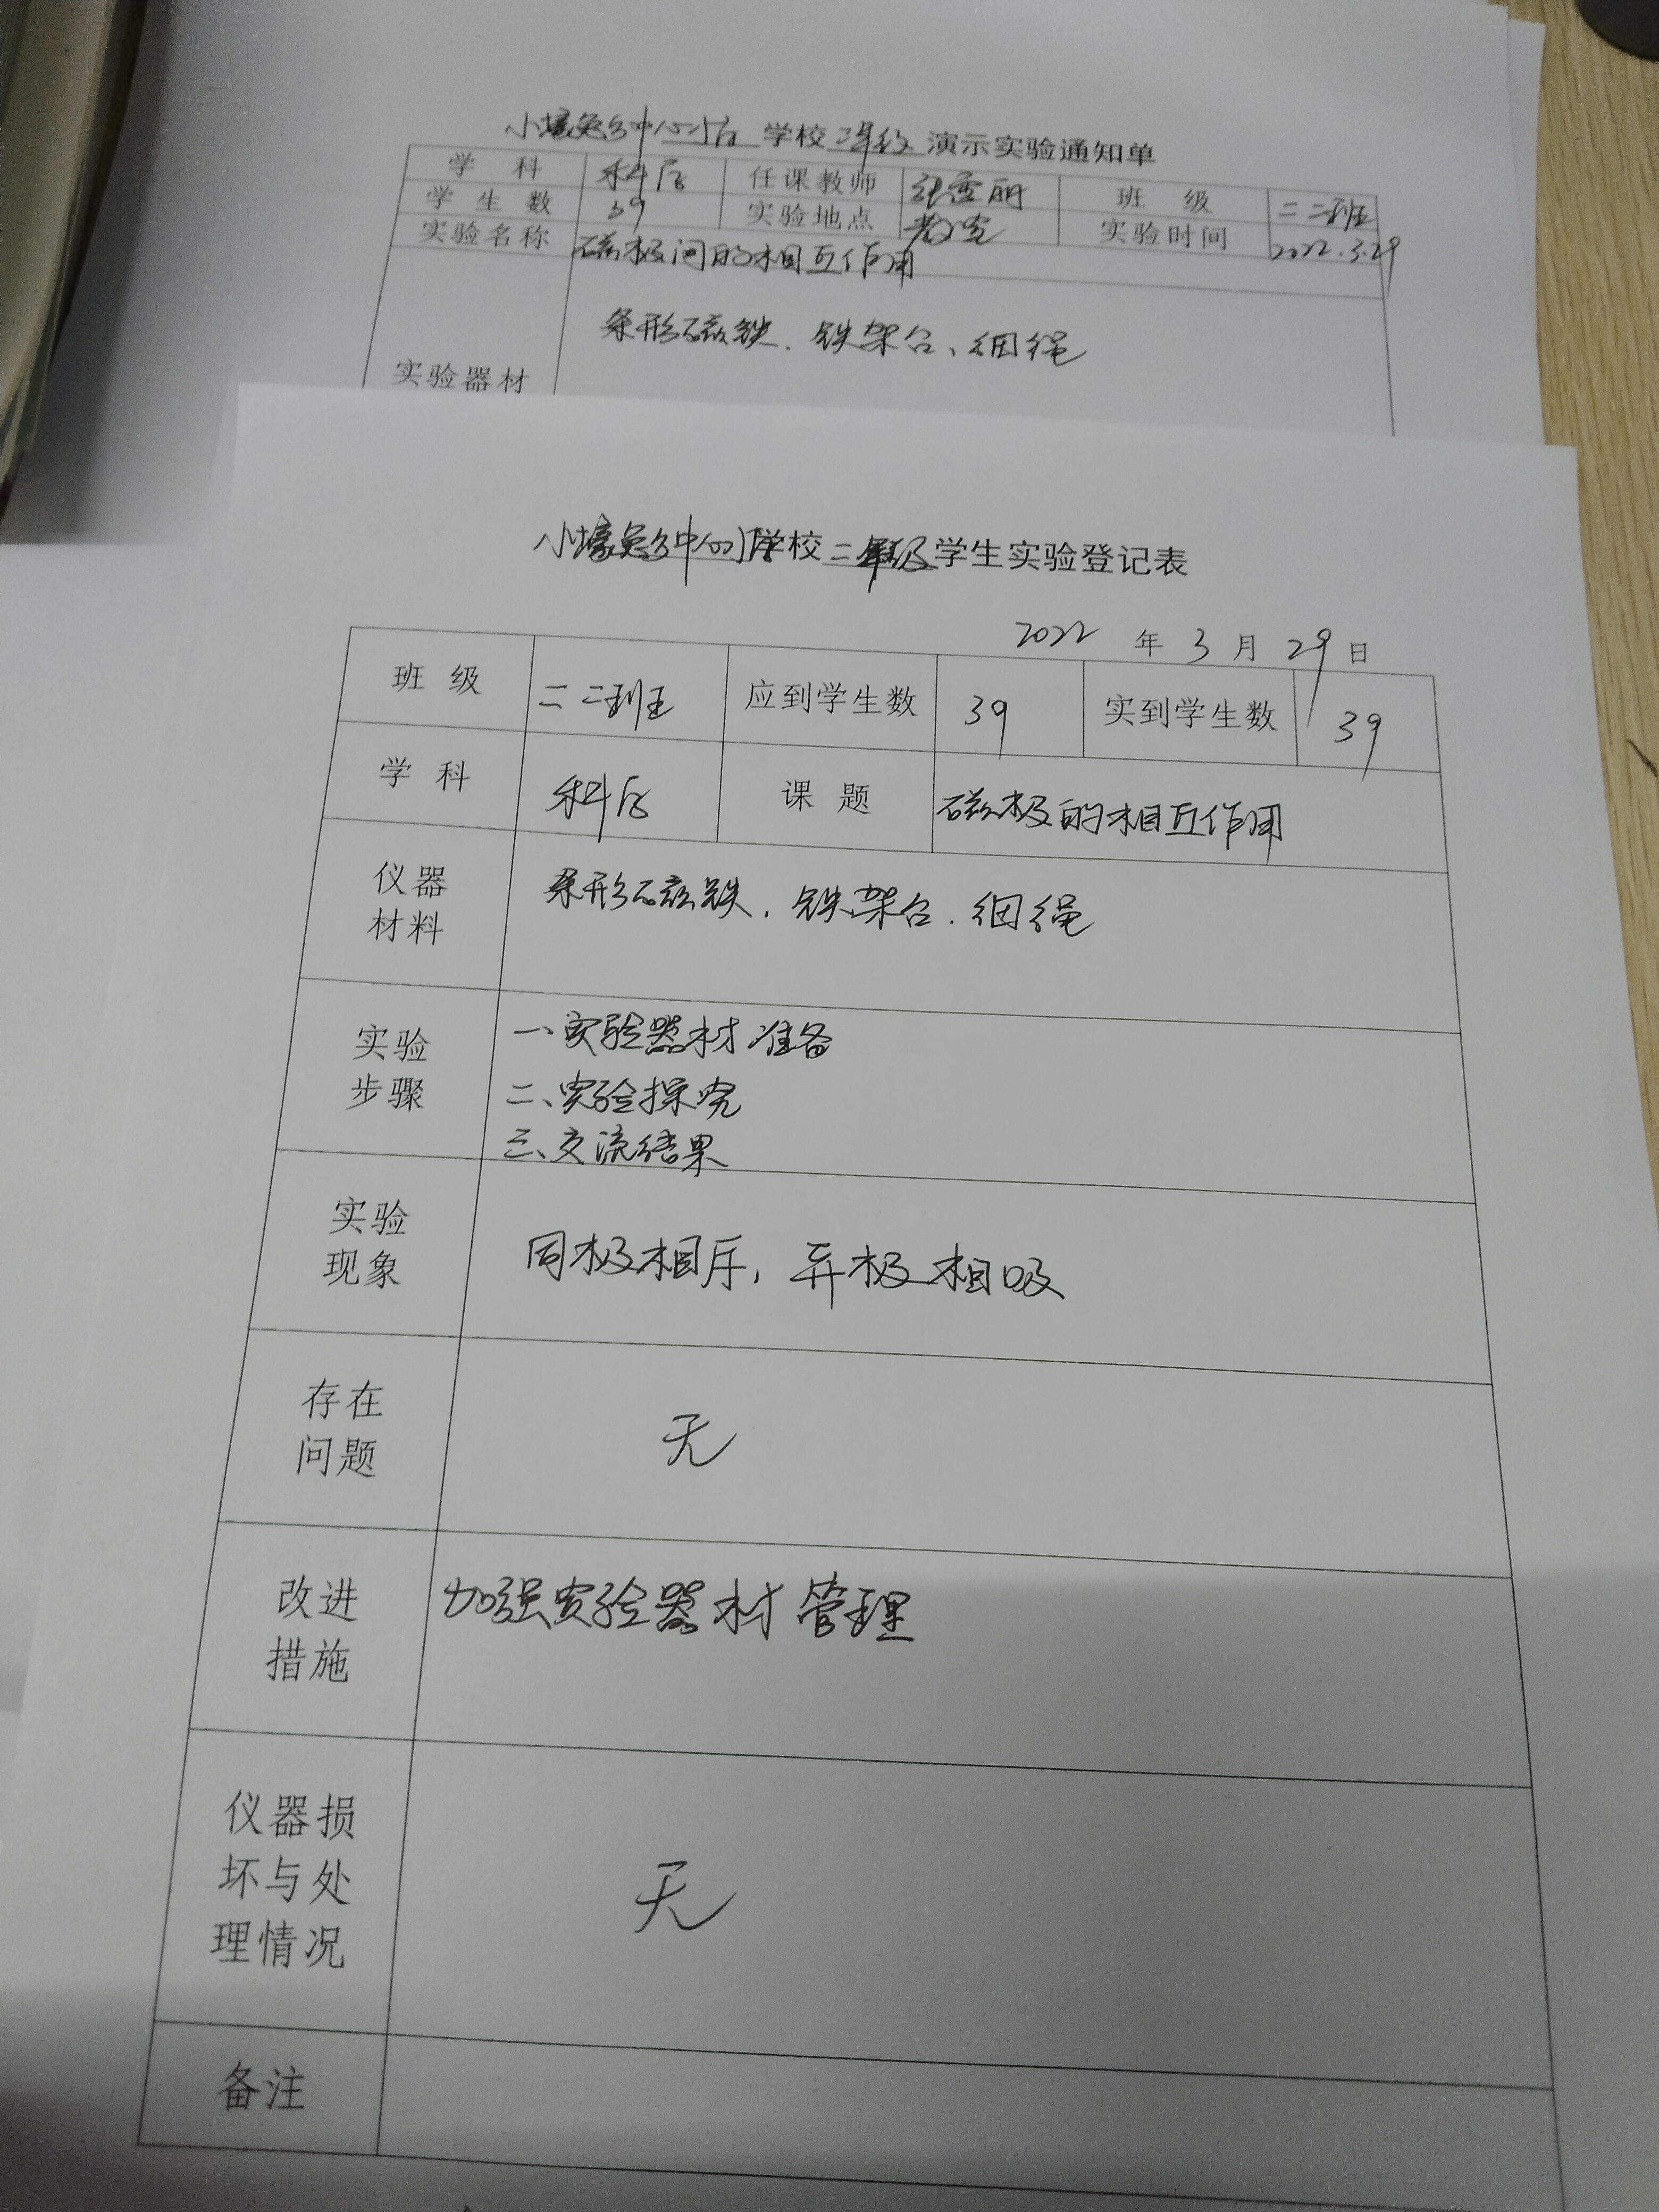 小壕兔乡中心小学 学校 二年级 演示实验通知单
学 科 科学 任课教师 班 级 二二班
学 生 数 39 实验地点 教室 实验时间 2022.3.29
实验名称 磁极间的相互作用
实验器材 条形磁铁、铁架台、细绳
小壕兔乡中心小学学校二年级学生实验登记表
2022 年 3 月 29 日
班 级 二二班 应到学生数 39 实到学生数 39
学 科 科学 课 题 磁极的相互作用
仪器
材料
条形磁铁、铁架台、细绳
实验
步骤
一、实验器材准备
二、实验探究
三、交流结果
实验
现象
同极相斥,异极相吸
存在
问题
无
改进
措施
加强实验器材管理
仪器损
坏与处
理情况
无
备注